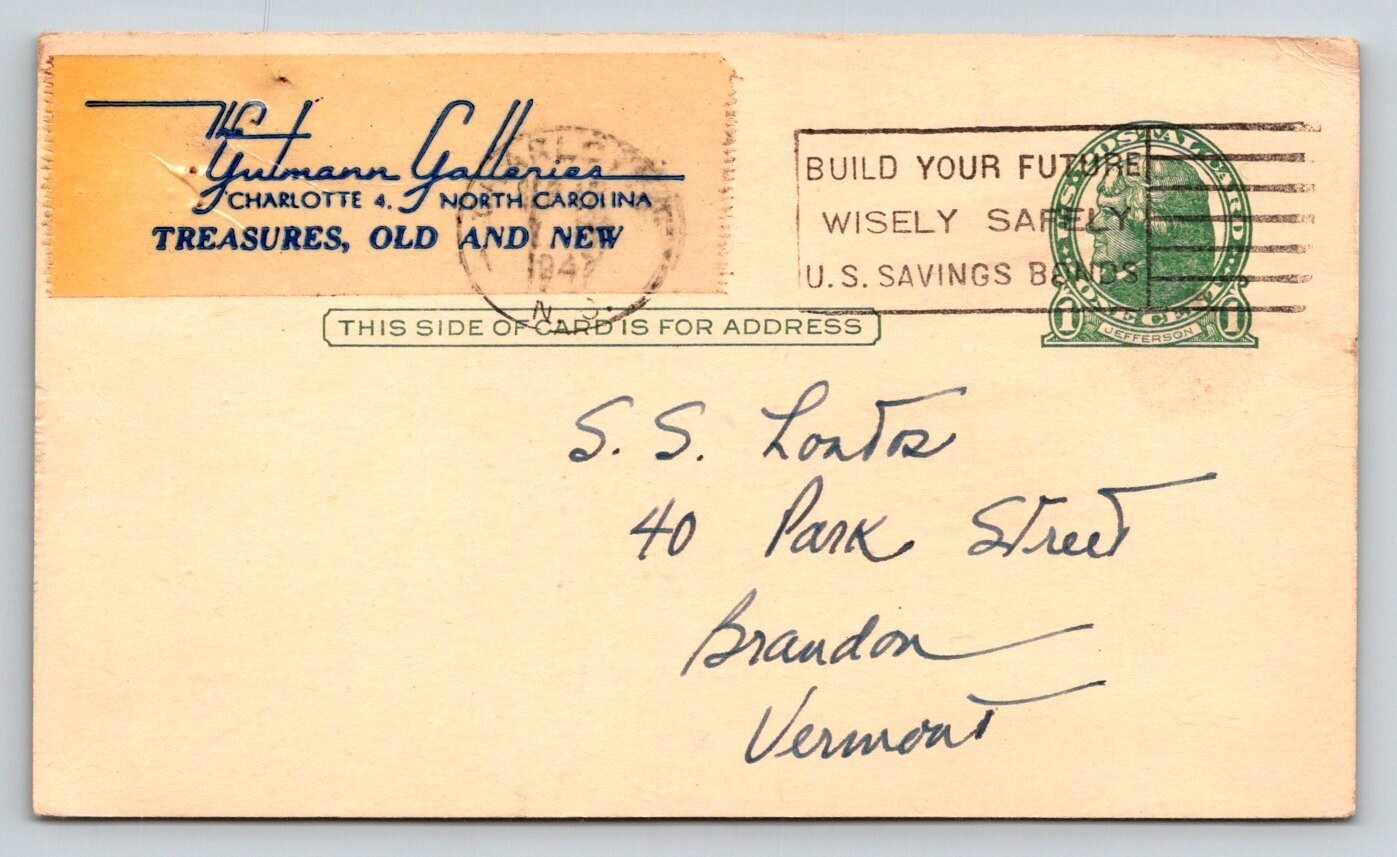 The
Gutmann Galleries
CHARLOTTE 4, NORTH CAROLINA
TREASURES, OLD AND NEW
1947
N. C.
BUILD YOUR FUTURE
WISELY SAFELY
U.S. SAVINGS BONDS
U.S. POSTAL CARD
1 ONE CENT 1
JEFFERSON
THIS SIDE OF CARD IS FOR ADDRESS
S. S. Lontos
40 Park Street
Brandon
Vermont